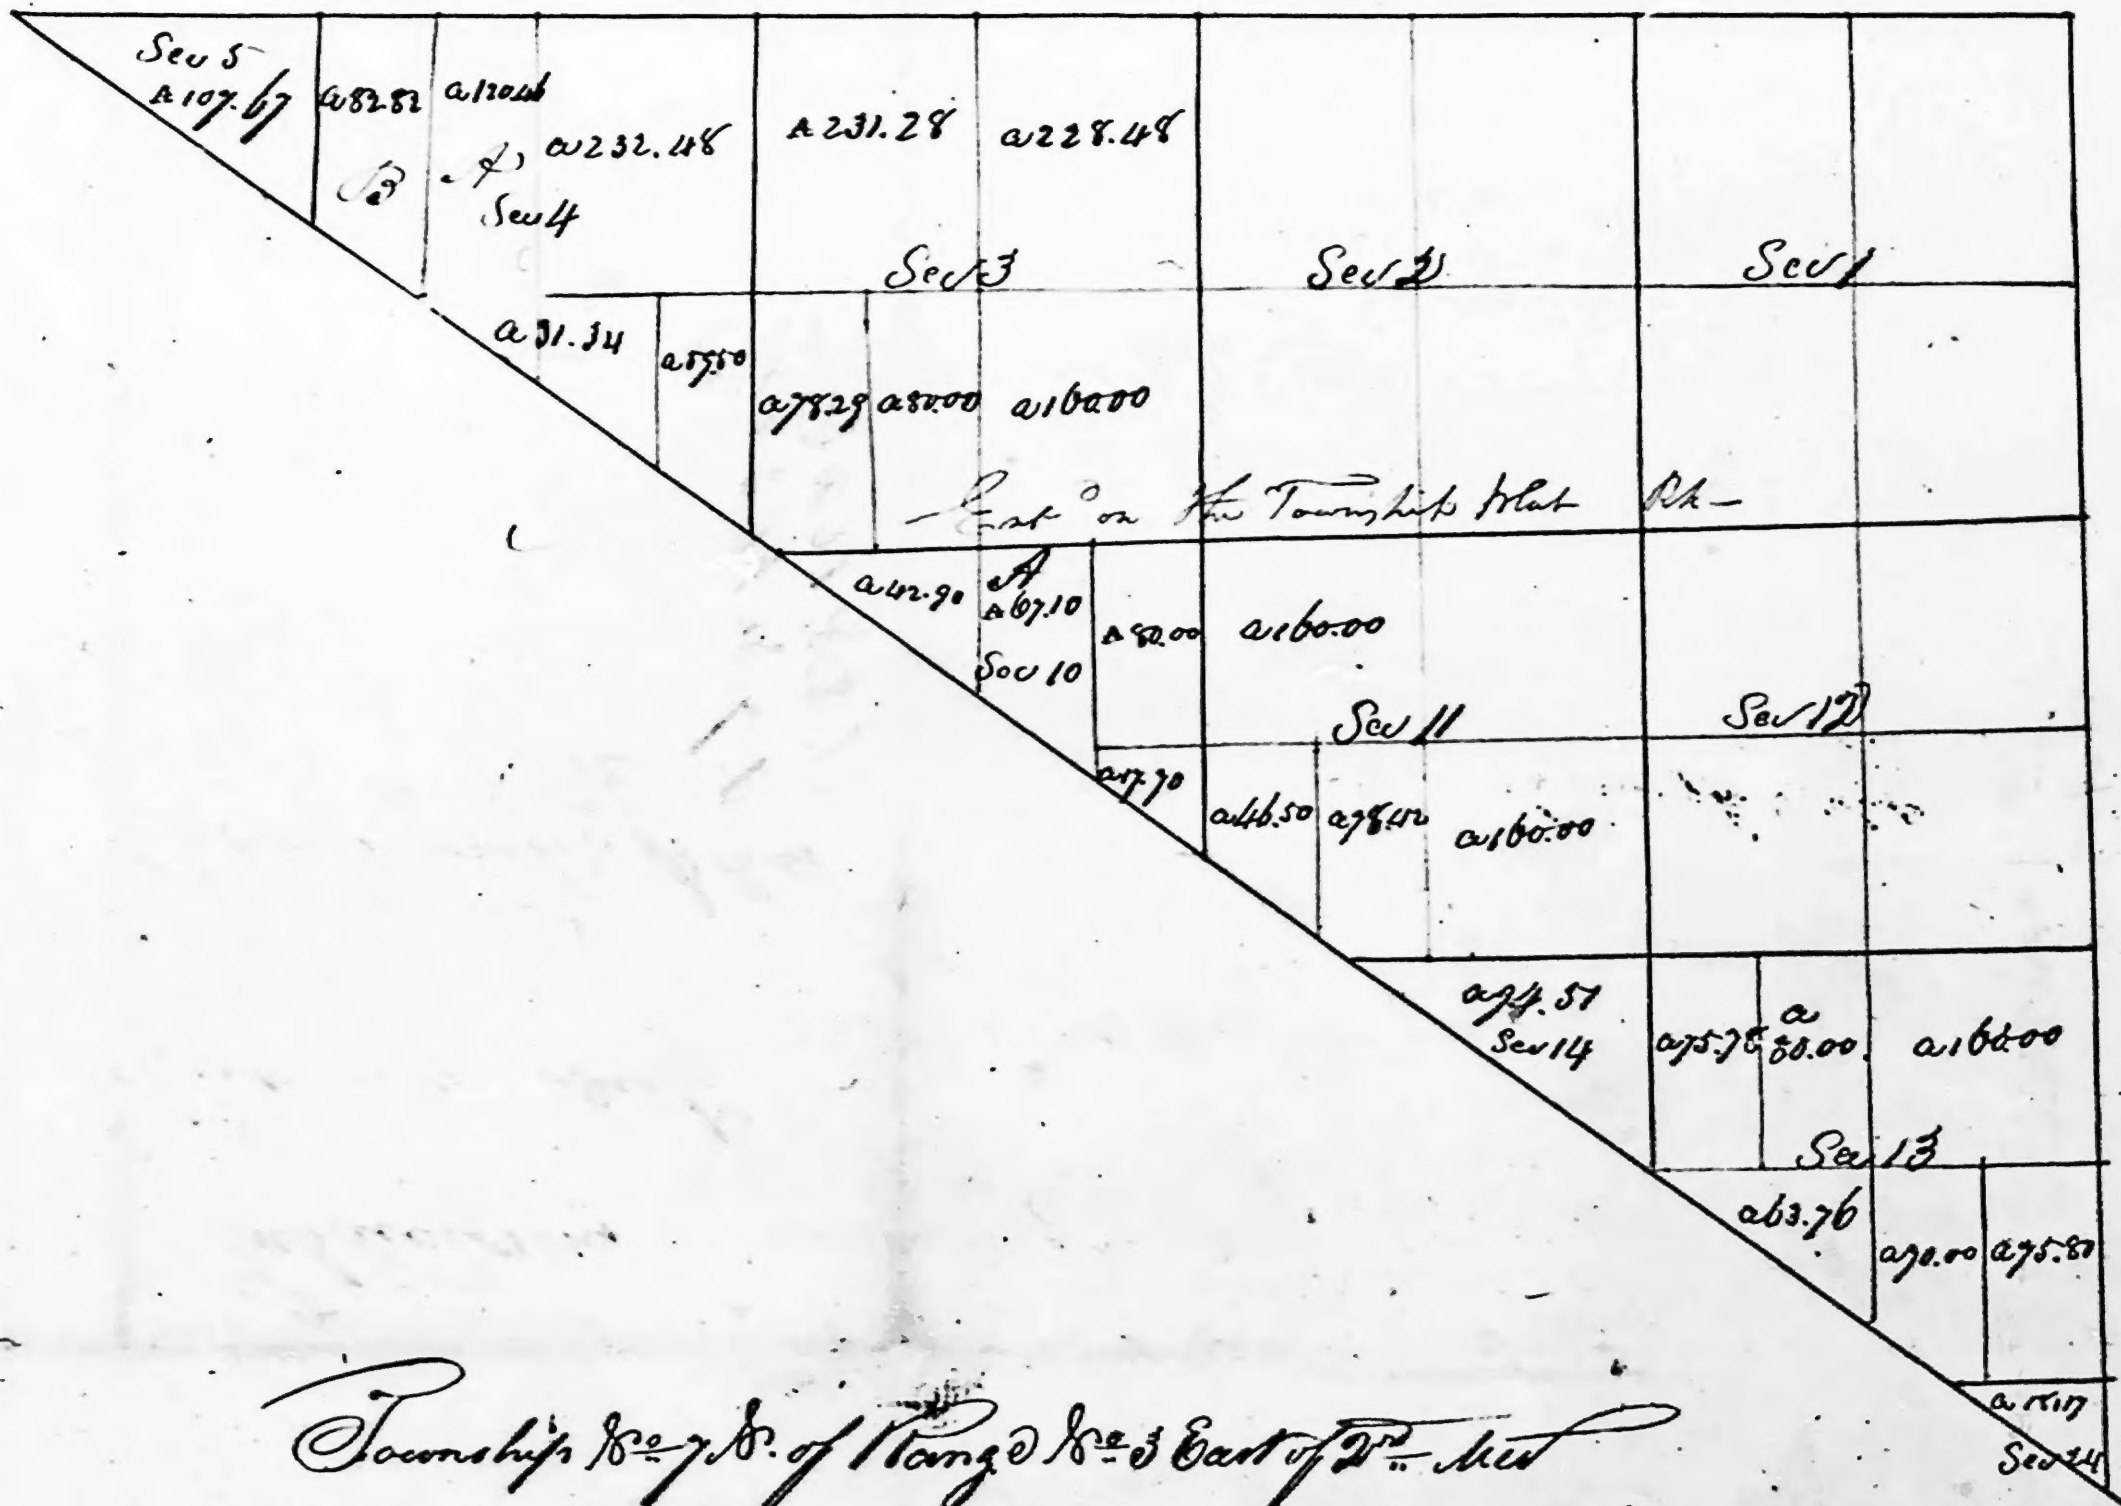 Sec 5
A 107.67
a 82.82
a 120.46
B
A
a 232.48
Sec 4
A 231.28
a 228.48
Sec 3
Sec 2
Sec 1
a 59.50
a 78.29
a 80.00
a 160.00
on the Township Plat
a 42.90
A
A 67.10
Sec 10
A 80.00
a 160.00
Sec 11
Sec 12
a 17.70
a 46.50
a 78.42
a 160.00
Sec 14
a 75.78
a
80.00
a 160.00
Sec 13
a 63.76
a 70.00
a 75.80
Sec 24
Township No 7 N. of Range No 3 East of 2nd Mer